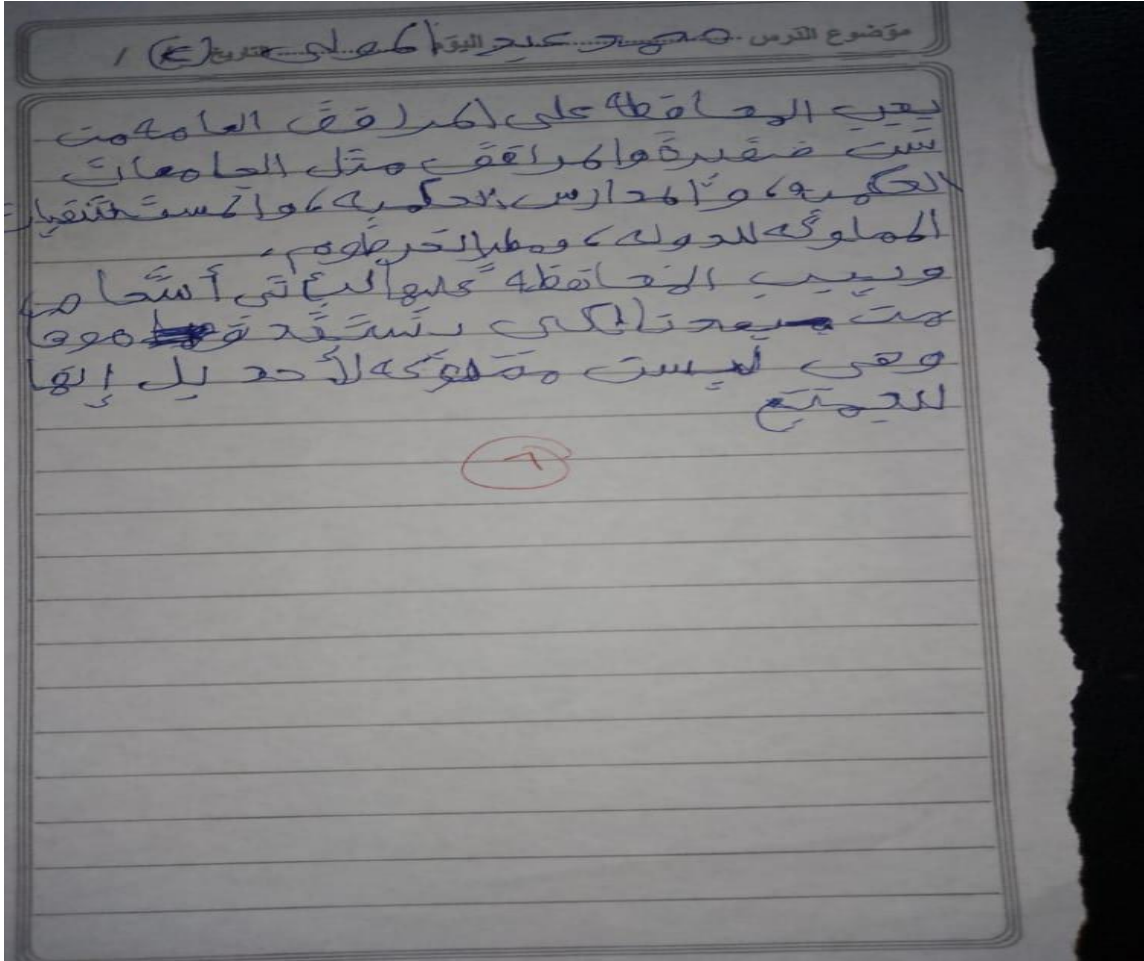 موضوع الدرس محمد عبد المولى اليوم التاريخ (ع) /
يجب المحافظة على المرافق العامه من
سن صغيرة والمرافق مثل الجامعات
الحكميه، والمدارس الحكميه، والمستشفيات
المملوكه للدوله، ومطار الخرطوم،
ويجب المحافظة عليها لياتي أشخاص
من بعدنا لكي يستخدموها
وهي ليست مملوكه لأحد بل إنها
للجمتيع
٦